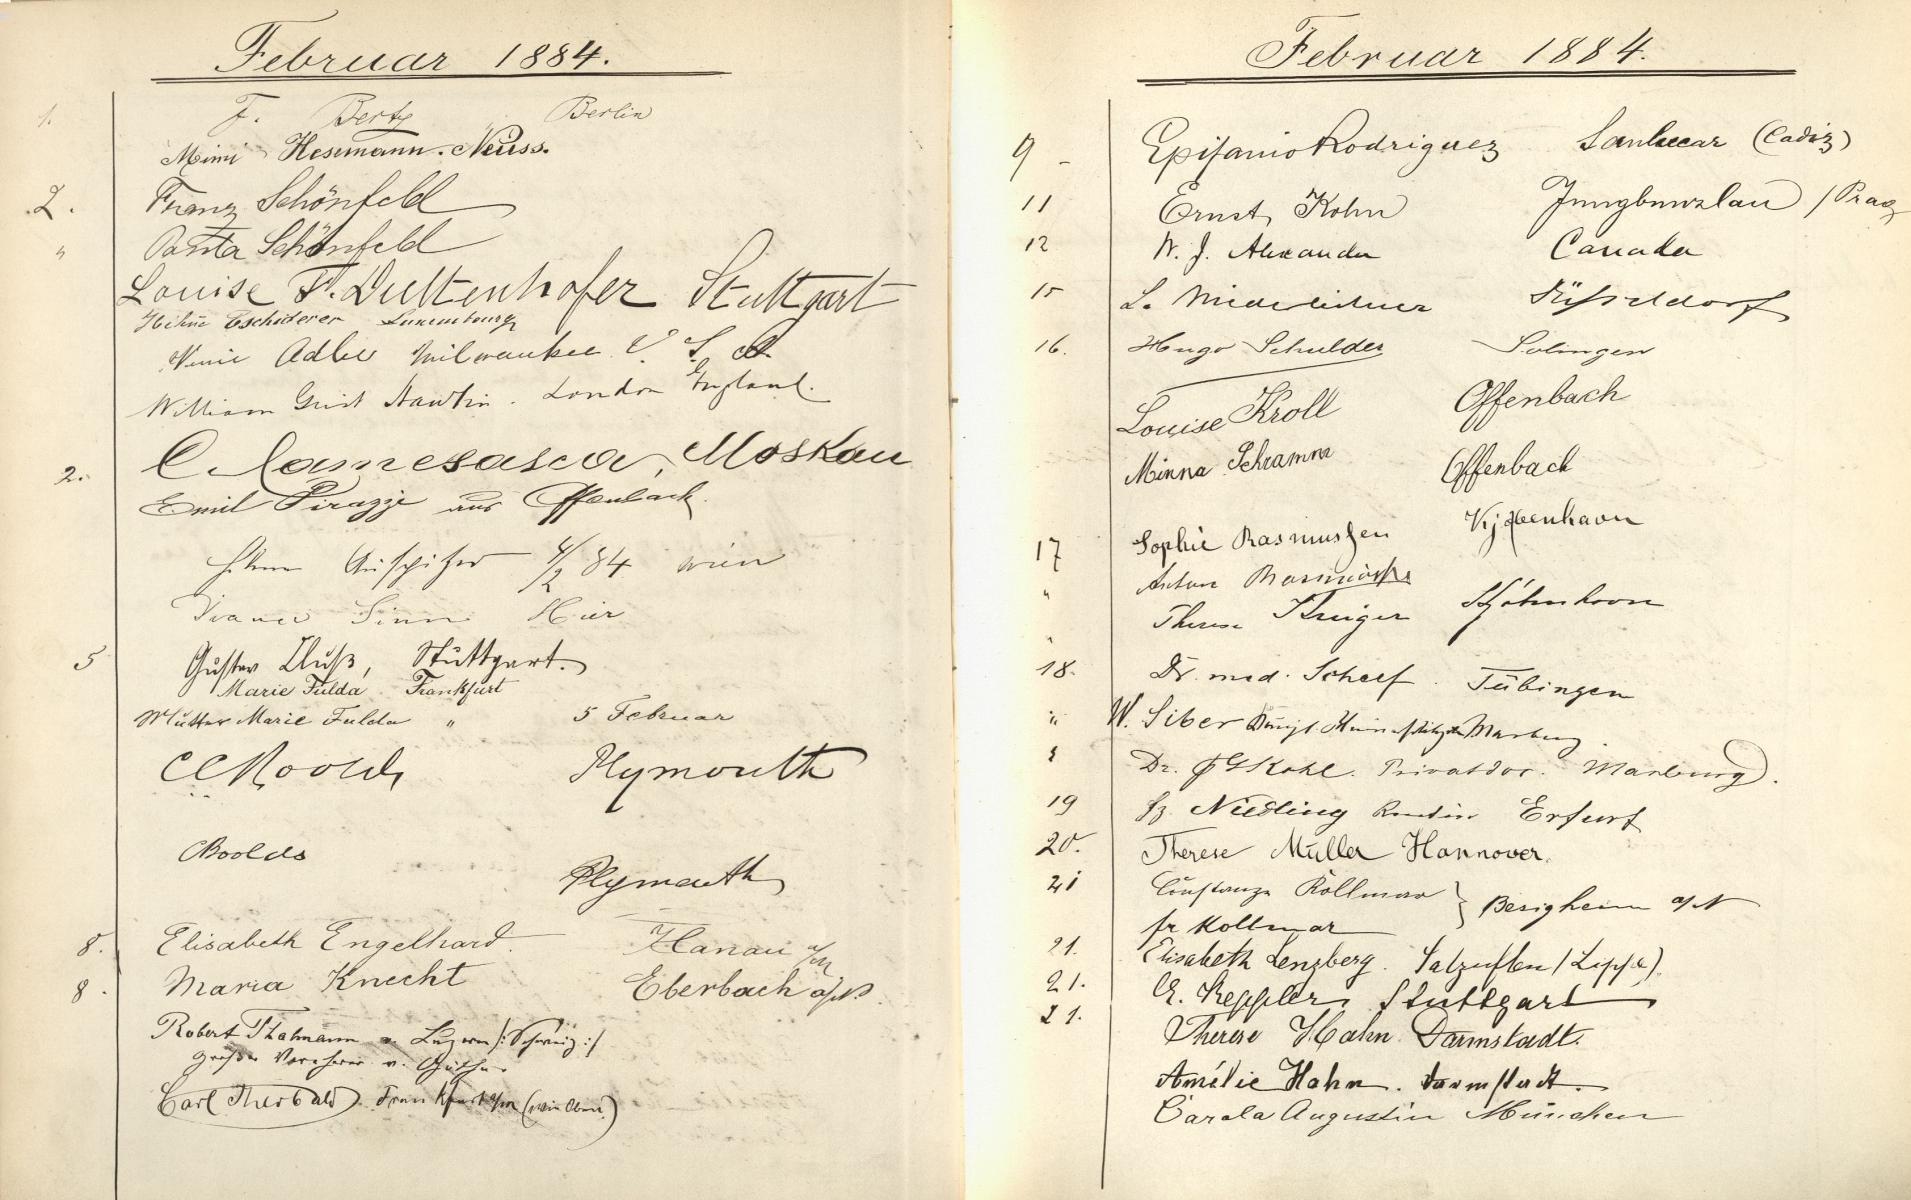 Februar 1884.
1. F. Bertz Berlin
Mimi Hesemann. Neuss.
2. Franz Schönfeld
" Schönfeld
Louise F. Duttenhofer Stuttgart
Tschiderer Luxembourg
Adler Milwaukee U S A
William Grist Hawtin. London England.
2. Moskau
Emil Pirazzi aus Offenbach.
Auspitzer 4/2 84 Wien
Sinn Hier
5 Gustav Stuttgart.
Marie Fulda Frankfurt
Mutter Marie Fulda " 5 Februar
Plymouth
Plymouth
8. Elisabeth Engelhard. Hanau a/M
8. Maria Knecht Eberbach a/N.
Robert Thalmann v. Luzern /: Schweiz :/
großer Verehrer v. Göthe.
Carl Theobald Frankfurt a/M (wie oben)
Februar 1884.
9 - Epifanio Rodriguez Sanlucar (Cadiz)
11 Ernst Kohn Jungbunzlau / Prag
12 W. J. Alexander Canada
15 L. Niederleitner Düsseldorf
16. Hugo Schulder Solingen
Louise Kroll Offenbach
Minna Schramm Offenbach
17 Sophie Rasmussen Kjøbenhavn
" Anton
" Therese Krüger
18. Dr. med. Scheef. Tübingen
" W. Siber Marburg.
" Dr. FG Kohl. Privatdoc. Marburg.
19 Fz. Niedling Erfurt
20. Therese Müller Hannover.
21 Constanze Kollmar } Besigheim a/N
fr Kollmar
21. Elisabeth Lenzberg. Salzuflen / Lippe).
21. E. Keppler, Stuttgart
21. Therese Hahn Darmstadt.
Amélie Hahn. Darmstadt.
Carola Augustin München